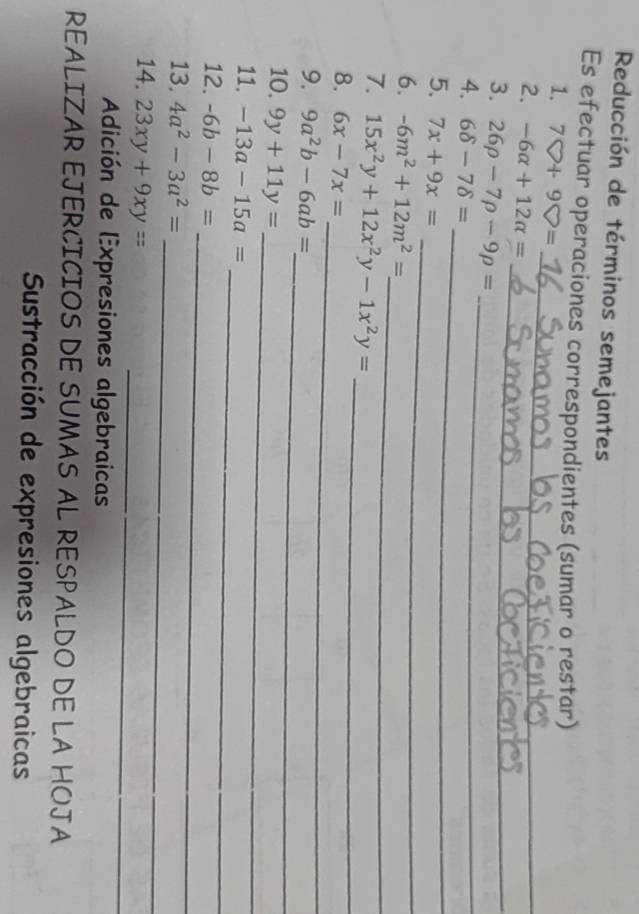 Reducción de términos semejantes
Es efectuar operaciones correspondientes (sumar o restar)
1. 7♡+ 9♡= 16 Sumamos los Coeficientes
2. −6a + 12a = 6 Sumamos los Coeficientes
3. 26ρ − 7ρ − 9ρ =
4. 6δ − 7δ =
5. 7x + 9x =
6. -6m² + 12m² =
7. 15x²y + 12x²y − 1x²y =
8. 6x − 7x =
9. 9a²b − 6ab =
10. 9y + 11y =
11. −13a − 15a =
12. -6b − 8b =
13. 4a² − 3a² =
14. 23xy + 9xy =
Adición de Expresiones algebraicas
REALIZAR EJERCICIOS DE SUMAS AL RESPALDO DE LA HOJA
Sustracción de expresiones algebraicas